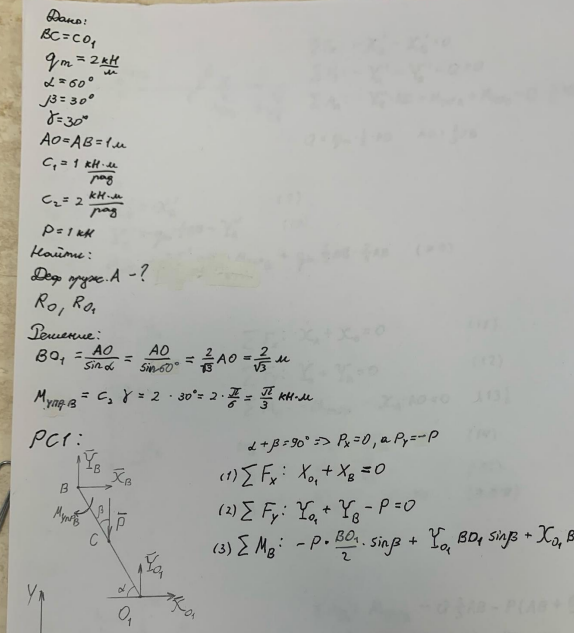 Дано:
BC=CO₁
qm=2 кН/м
α=60°
β=30°
γ=30°
AO=AB=1м
C₁=1 кН·м/рад
C₂=2 кН·м/рад
P=1кН
Найти:
Деф. пруж. A -?
R_O, R_O₁
Решение:
BO₁ = AO/sin α = AO/sin 60° = 2/√3 AO = 2/√3 м
M_упр.B = C₂ γ = 2 · 30° = 2 · π/6 = π/3 кН·м
РС1:
α+β=90° => Pₓ=0, а P_Y=-P
(1) ∑Fₓ: X_O₁ + X_B = 0
(2) ∑F_y: Y_O₁ + Y_B - P = 0
(3) ∑M_B: -P · BO₁/2 · sinβ + Y_O₁ BO₁ sinβ + X_O₁ B
Y̅_B
B X̅_B
M_упр.B β P̅
C
Y̅_O₁
Y α
O₁ X̅_O₁